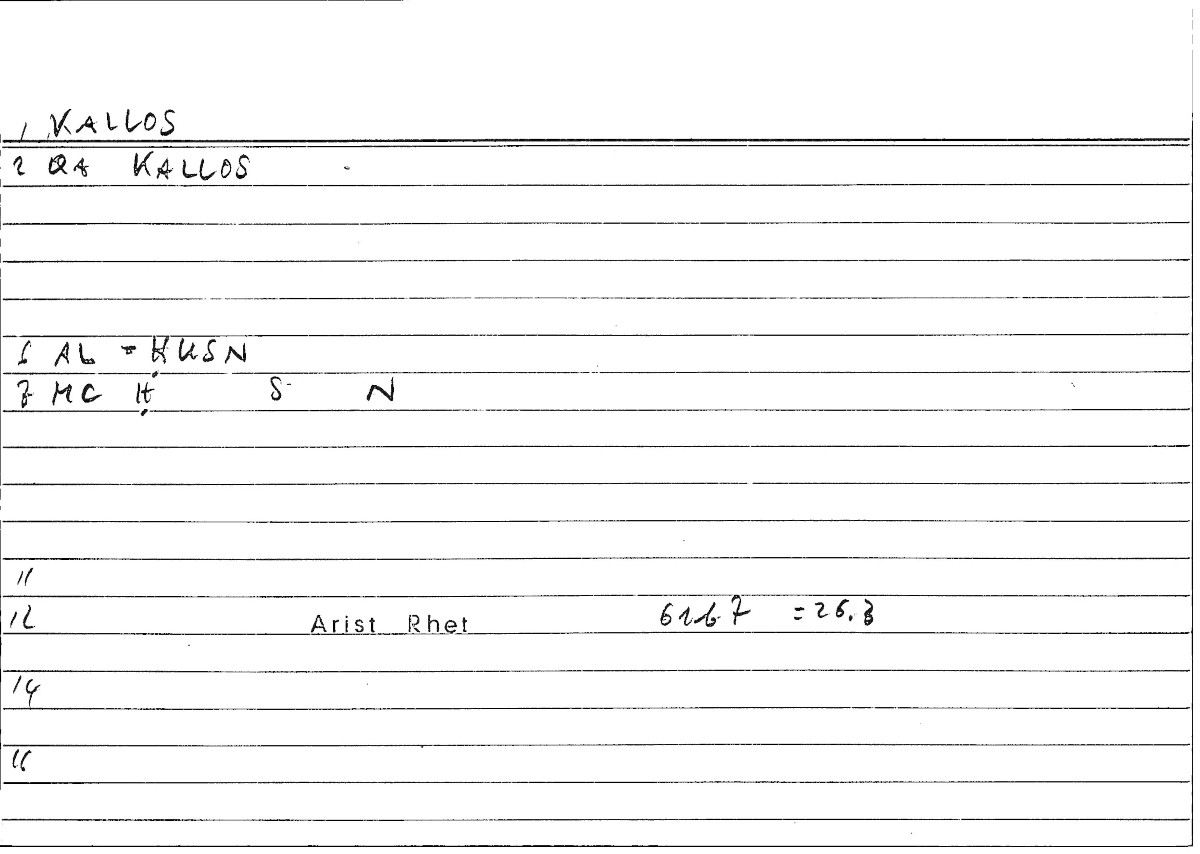 1 KALLOS
2 QA KALLOS
6 AL-ḤUSN
7 MC Ḥ S N
11
12 Arist Rhet 61b7 = 26.3
14
16